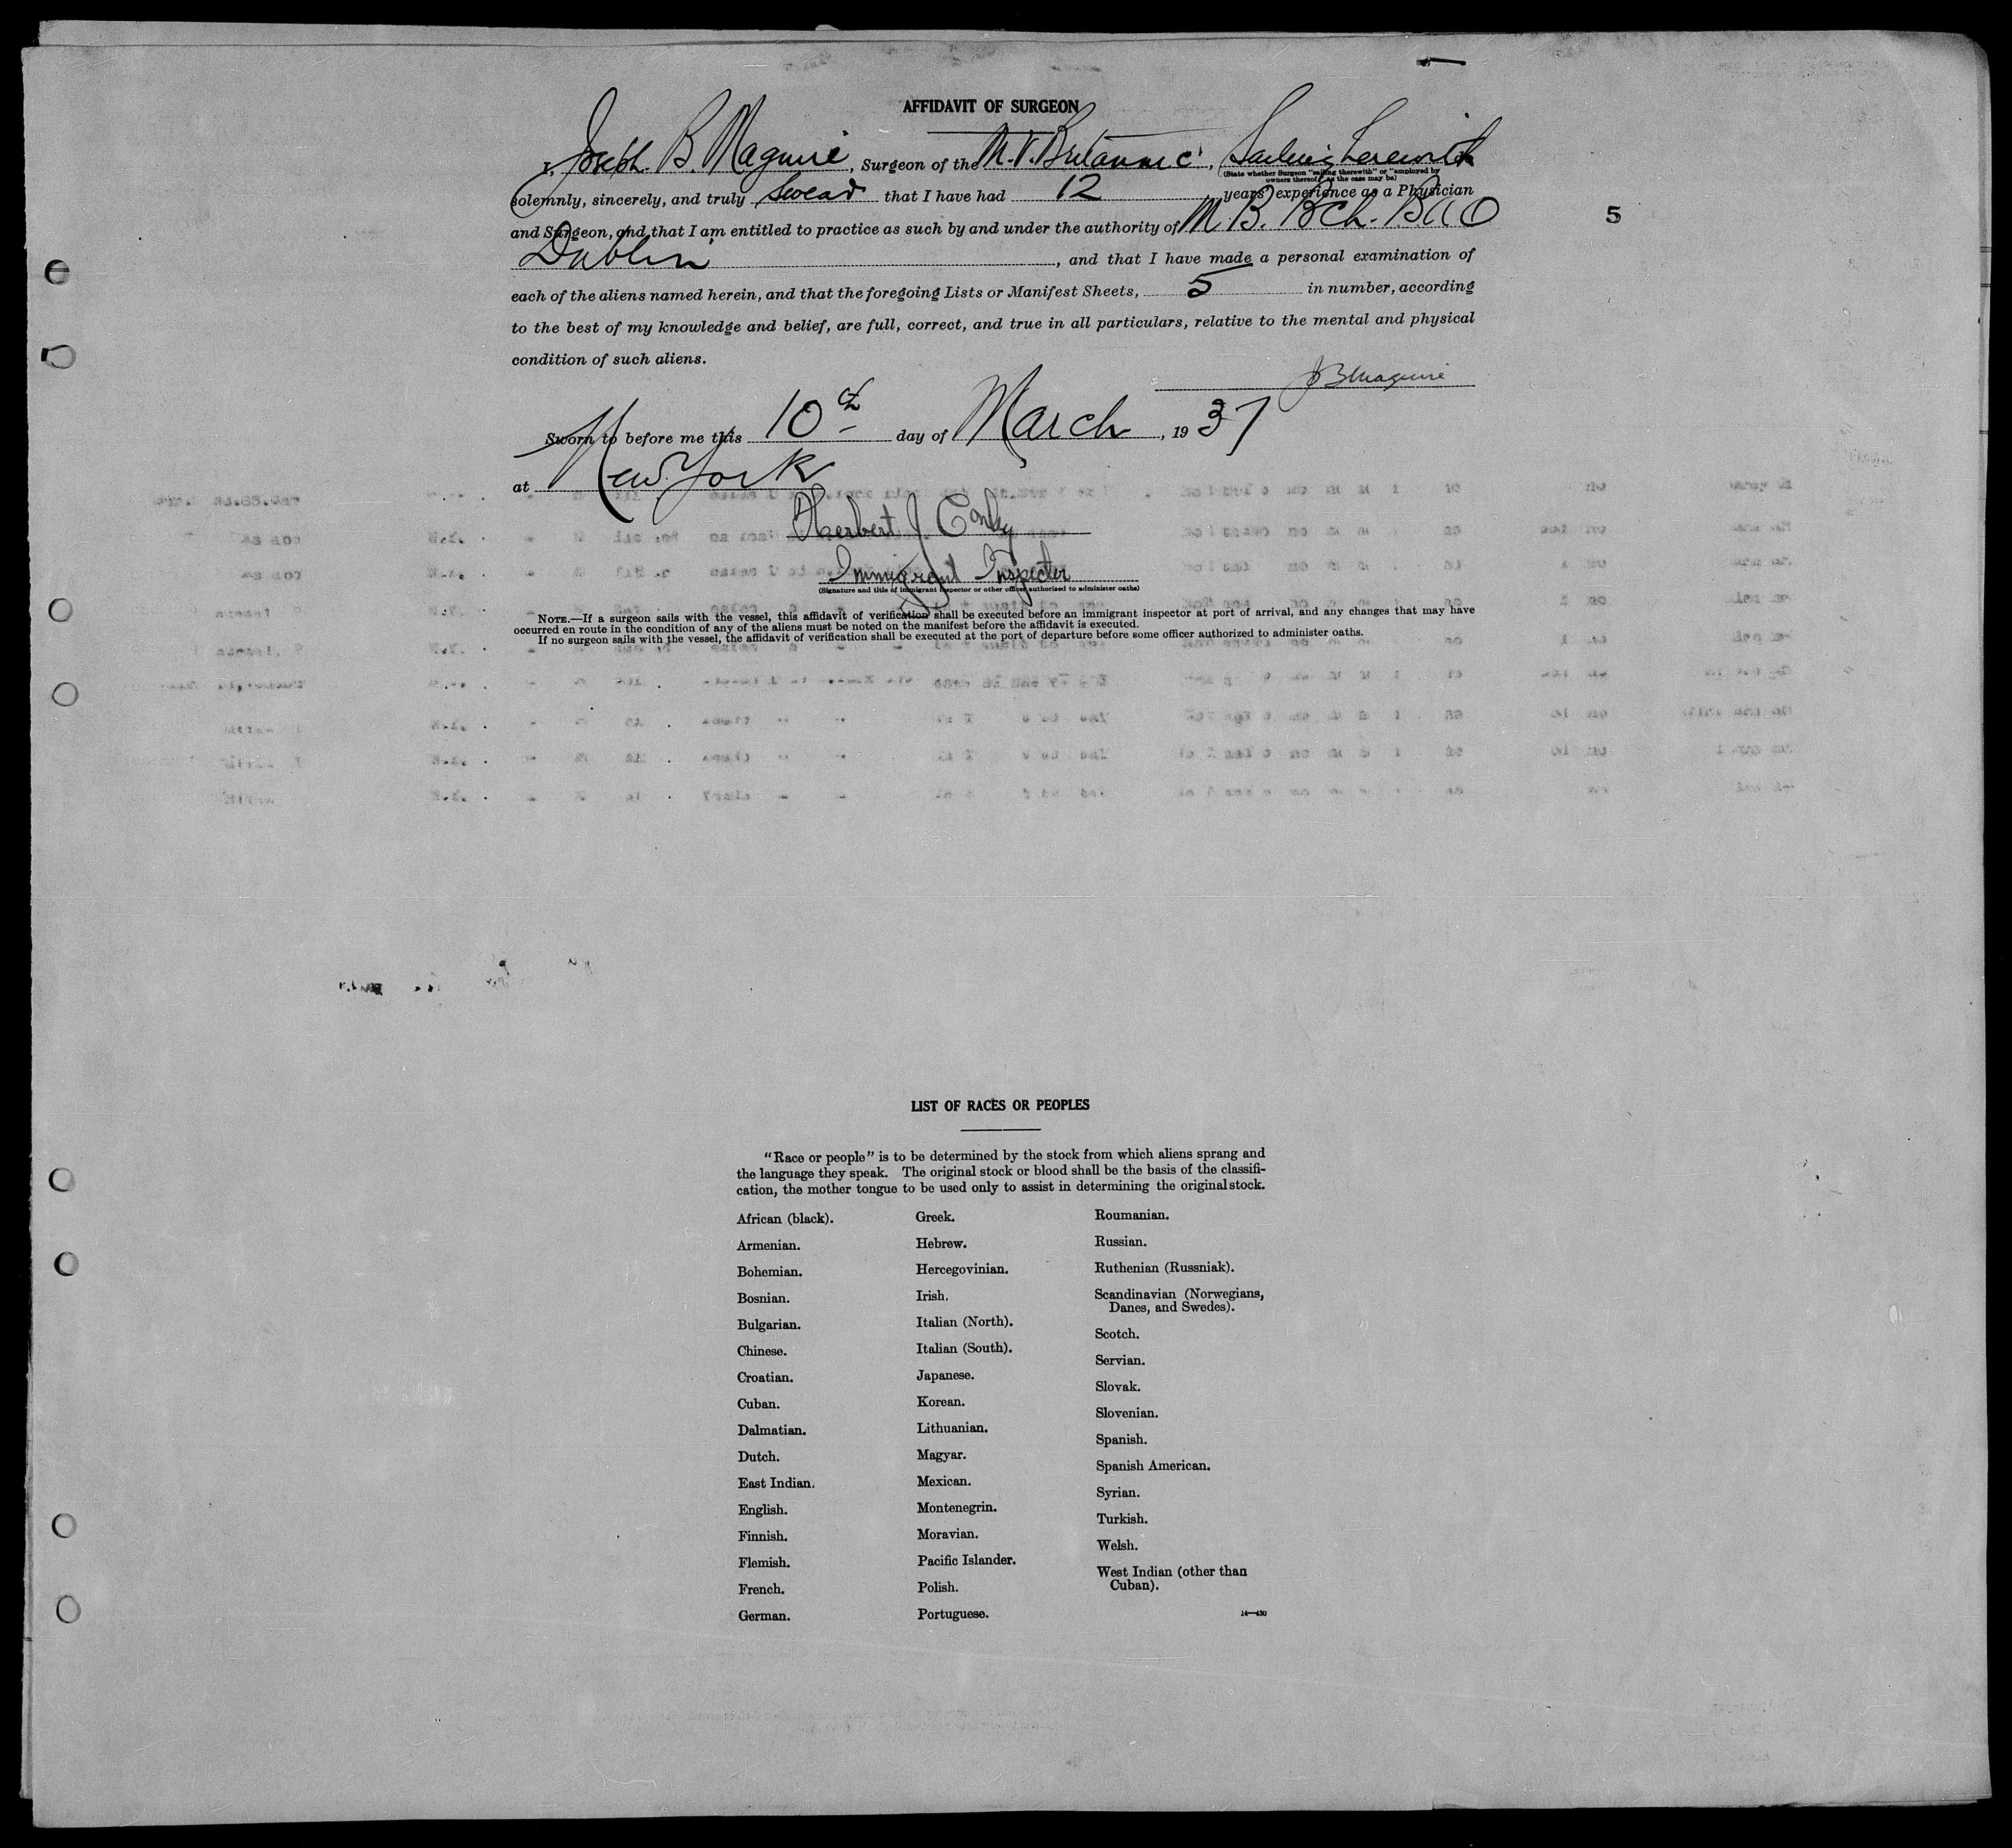 AFFIDAVIT OF SURGEON
I, Joseph B. Maguire, Surgeon of the M.V. Britannic, Sailing therewith
(State whether Surgeon "sailing therewith" or "employed by
owners thereof," as the case may be)
solemnly, sincerely, and truly swear that I have had 12 years' experience as a Physician
and Surgeon, and that I am entitled to practice as such by and under the authority of M.B. BCh. BAO
Dublin, and that I have made a personal examination of
5
each of the aliens named herein, and that the foregoing Lists or Manifest Sheets, 5 in number, according
to the best of my knowledge and belief, are full, correct, and true in all particulars, relative to the mental and physical
condition of such aliens.
JB Maguire
Sworn to before me this 10th day of March, 1937
at New York
Herbert J Conley
Immigrant Inspector
(Signature and title of immigrant inspector or other officer authorized to administer oaths)
NOTE.—If a surgeon sails with the vessel, this affidavit of verification shall be executed before an immigrant inspector at port of arrival, and any changes that may have
occurred en route in the condition of any of the aliens must be noted on the manifest before the affidavit is executed.
If no surgeon sails with the vessel, the affidavit of verification shall be executed at the port of departure before some officer authorized to administer oaths.
LIST OF RACES OR PEOPLES
"Race or people" is to be determined by the stock from which aliens sprang and
the language they speak. The original stock or blood shall be the basis of the classifi-
cation, the mother tongue to be used only to assist in determining the original stock.
African (black).
Armenian.
Bohemian.
Bosnian.
Bulgarian.
Chinese.
Croatian.
Cuban.
Dalmatian.
Dutch.
East Indian.
English.
Finnish.
Flemish.
French.
German.
Greek.
Hebrew.
Hercegovinian.
Irish.
Italian (North).
Italian (South).
Japanese.
Korean.
Lithuanian.
Magyar.
Mexican.
Montenegrin.
Moravian.
Pacific Islander.
Polish.
Portuguese.
Roumanian.
Russian.
Ruthenian (Russniak).
Scandinavian (Norwegians,
Danes, and Swedes).
Scotch.
Servian.
Slovak.
Slovenian.
Spanish.
Spanish American.
Syrian.
Turkish.
Welsh.
West Indian (other than
Cuban).
14—430